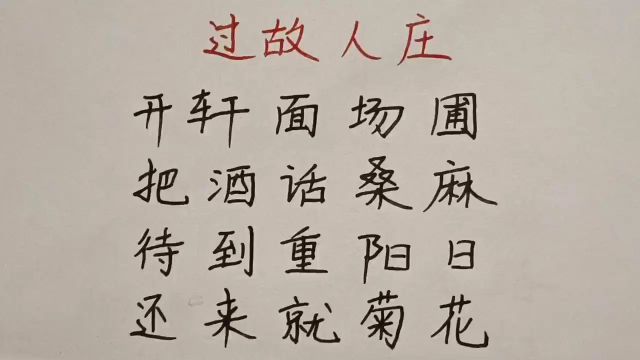 过故人庄
开轩面场圃
把酒话桑麻
待到重阳日
还来就菊花